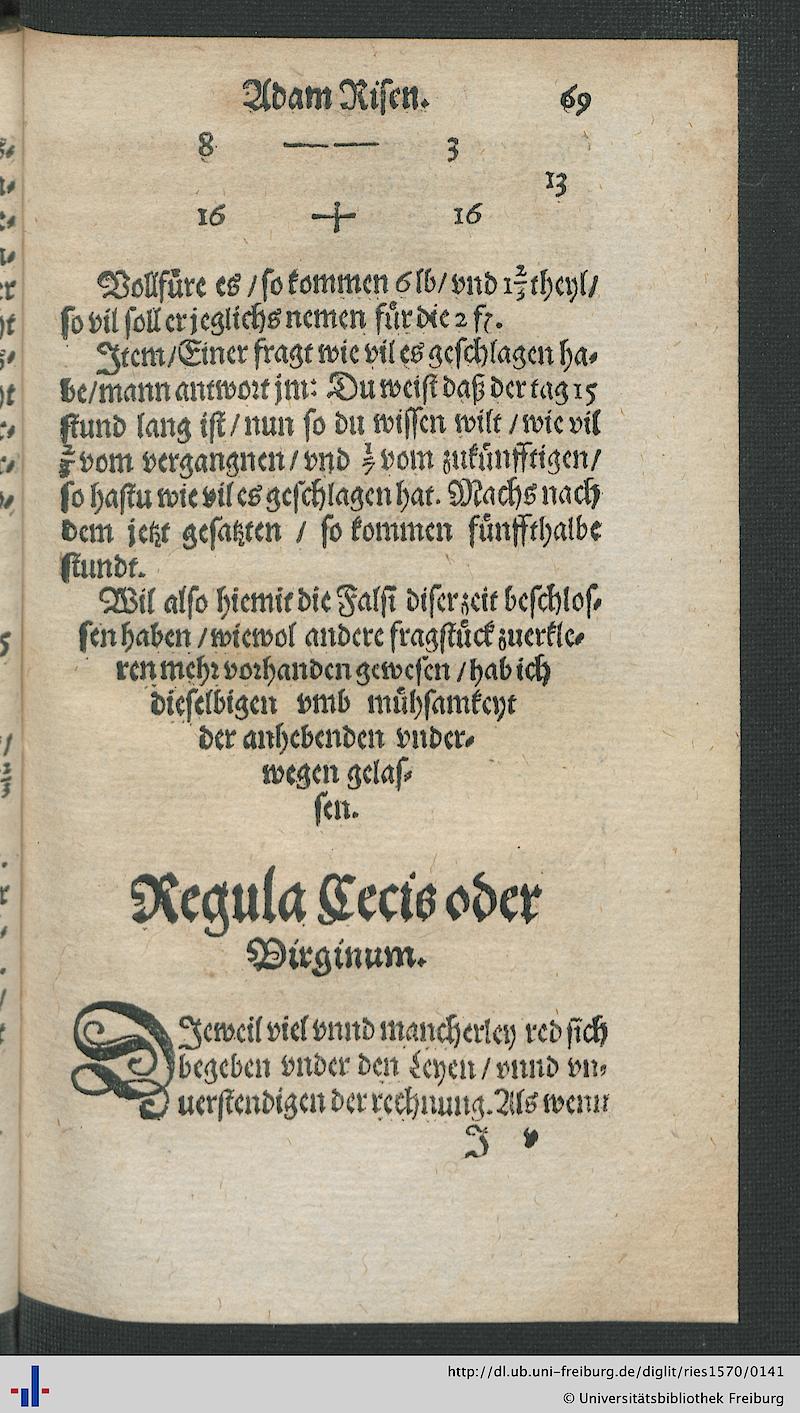 Adam Risen. 69
8 —— 3
13
16 + 16
Vollfüre es / so kommen 6 lb / vnd 1 2/3 theyl /
so vil soll er jeglichs nemen für die 2 fl.
Item / Einer fragt wie vil es geschlagen ha⸗
be / mann antwort jm: Du weist daß der tag 15
stund lang ist / nun so du wissen wilt / wie vil
vom vergangnen / vnd vom zukünfftigen /
so hastu wie vil es geschlagen hat. Machs nach
dem jetzt gesatzten / so kommen fünffthalbe
stundt.
Wil also hiemit die Falsi diser zeit beschlos⸗
sen haben / wiewol andere fragstück zuerkle⸗
ren mehr vorhanden gewesen / hab ich
dieselbigen vmb mühsamkeyt
der anhebenden vnder⸗
wegen gelas⸗
sen.
Regula Cecis oder
Virginum.
DIeweil viel vnnd mancherley red sich
begeben vnder den Leyen / vnnd vn⸗
uerstendigen der rechnung. Als wenn
J v
http://dl.ub.uni-freiburg.de/diglit/ries1570/0141
© Universitätsbibliothek Freiburg